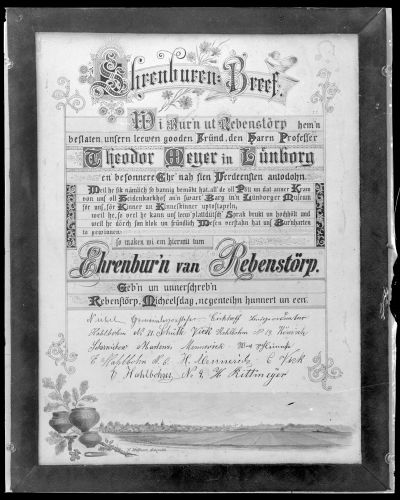 Ehrenburen-Breef.
Wi Bur'n ut Rebenstörp hem'n
beslaten, unsern leewen gooden Fründ, den Harrn Professer
Theodor Meyer in Lünborg
en besonnere Ehr' nah sien Verdeensten antodohn.
Weil he sik nämlich so bannig bemöht hat, all' de oll Pött un dat anner Kram
von uns' oll Heidenkarkhof an'n swart' Barg in'n Lünborger Museum
för uns, för Kinner un Kinneskinner uptostapeln,
weil he, so veel he kann, uns' leew' plattdütsch' Sprak brukt un hochhölt und
weil he dörch sin klok un fründlich Wesen verstahn hat uns' Burnharten
to gewinnen:
so maken wi em hiermit tum
Ehrenbur'n van Rebenstörp.
Geb'n un unnerschreb'n
Rebenstörp, Micheelsdag, negenteihn hunnert un een.
Gemeindevorsteher
Kahlbohm No 11. Schulte Vick Kahlbohm No 19.
Schneider
E Kahlbohm H. Mennerich E Vick
E Kahlbohm, No 9, H Rettmeyer